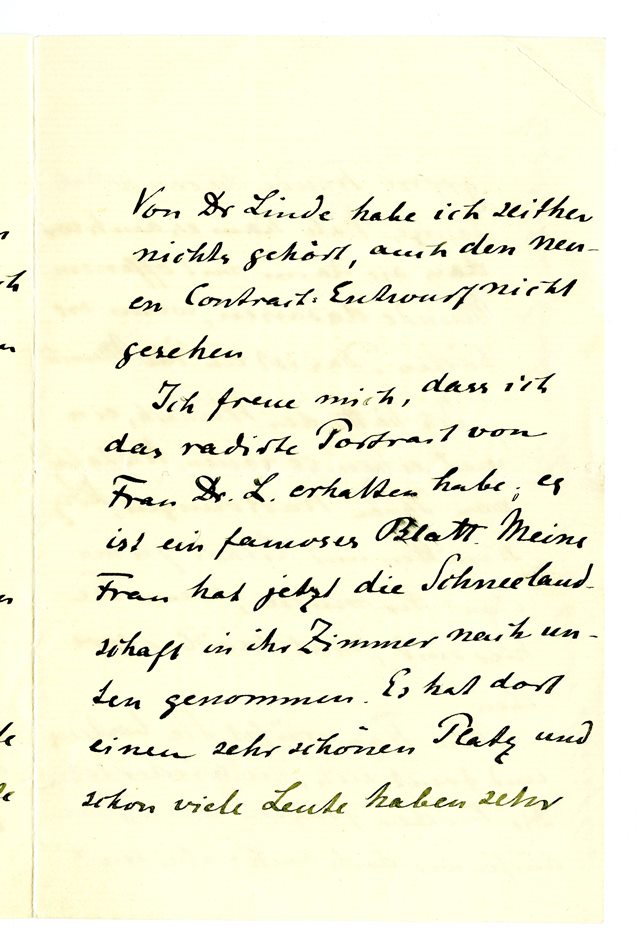 Von Dr Linde habe ich seither
nichts gehört, auch den neu-
en Contract-Entwurf nicht
gesehen
Ich freue mich, dass ich
das radirte Portrait von
Frau Dr. L. erhalten habe; es
ist ein famoses Blatt. Meine
Frau hat jetzt die Schneeland-
schaft in ihr Zimmer nach un-
ten genommen. Es hat dort
einen sehr schönen Platz und
schon viele Leute haben sehr